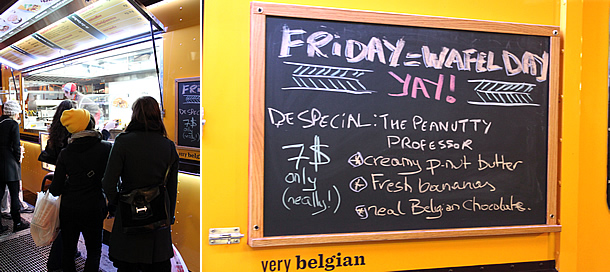 FRiDAY = WAFEL DAY
YAY!
DE SPECiAL: THE PEANUTTY
PROFESSOR
7$
only
(really!)
creamy p.nut butter
Fresh bananas
real Belgian Chocolate.
very belgian
FRi
DE SPE
7$
very bel